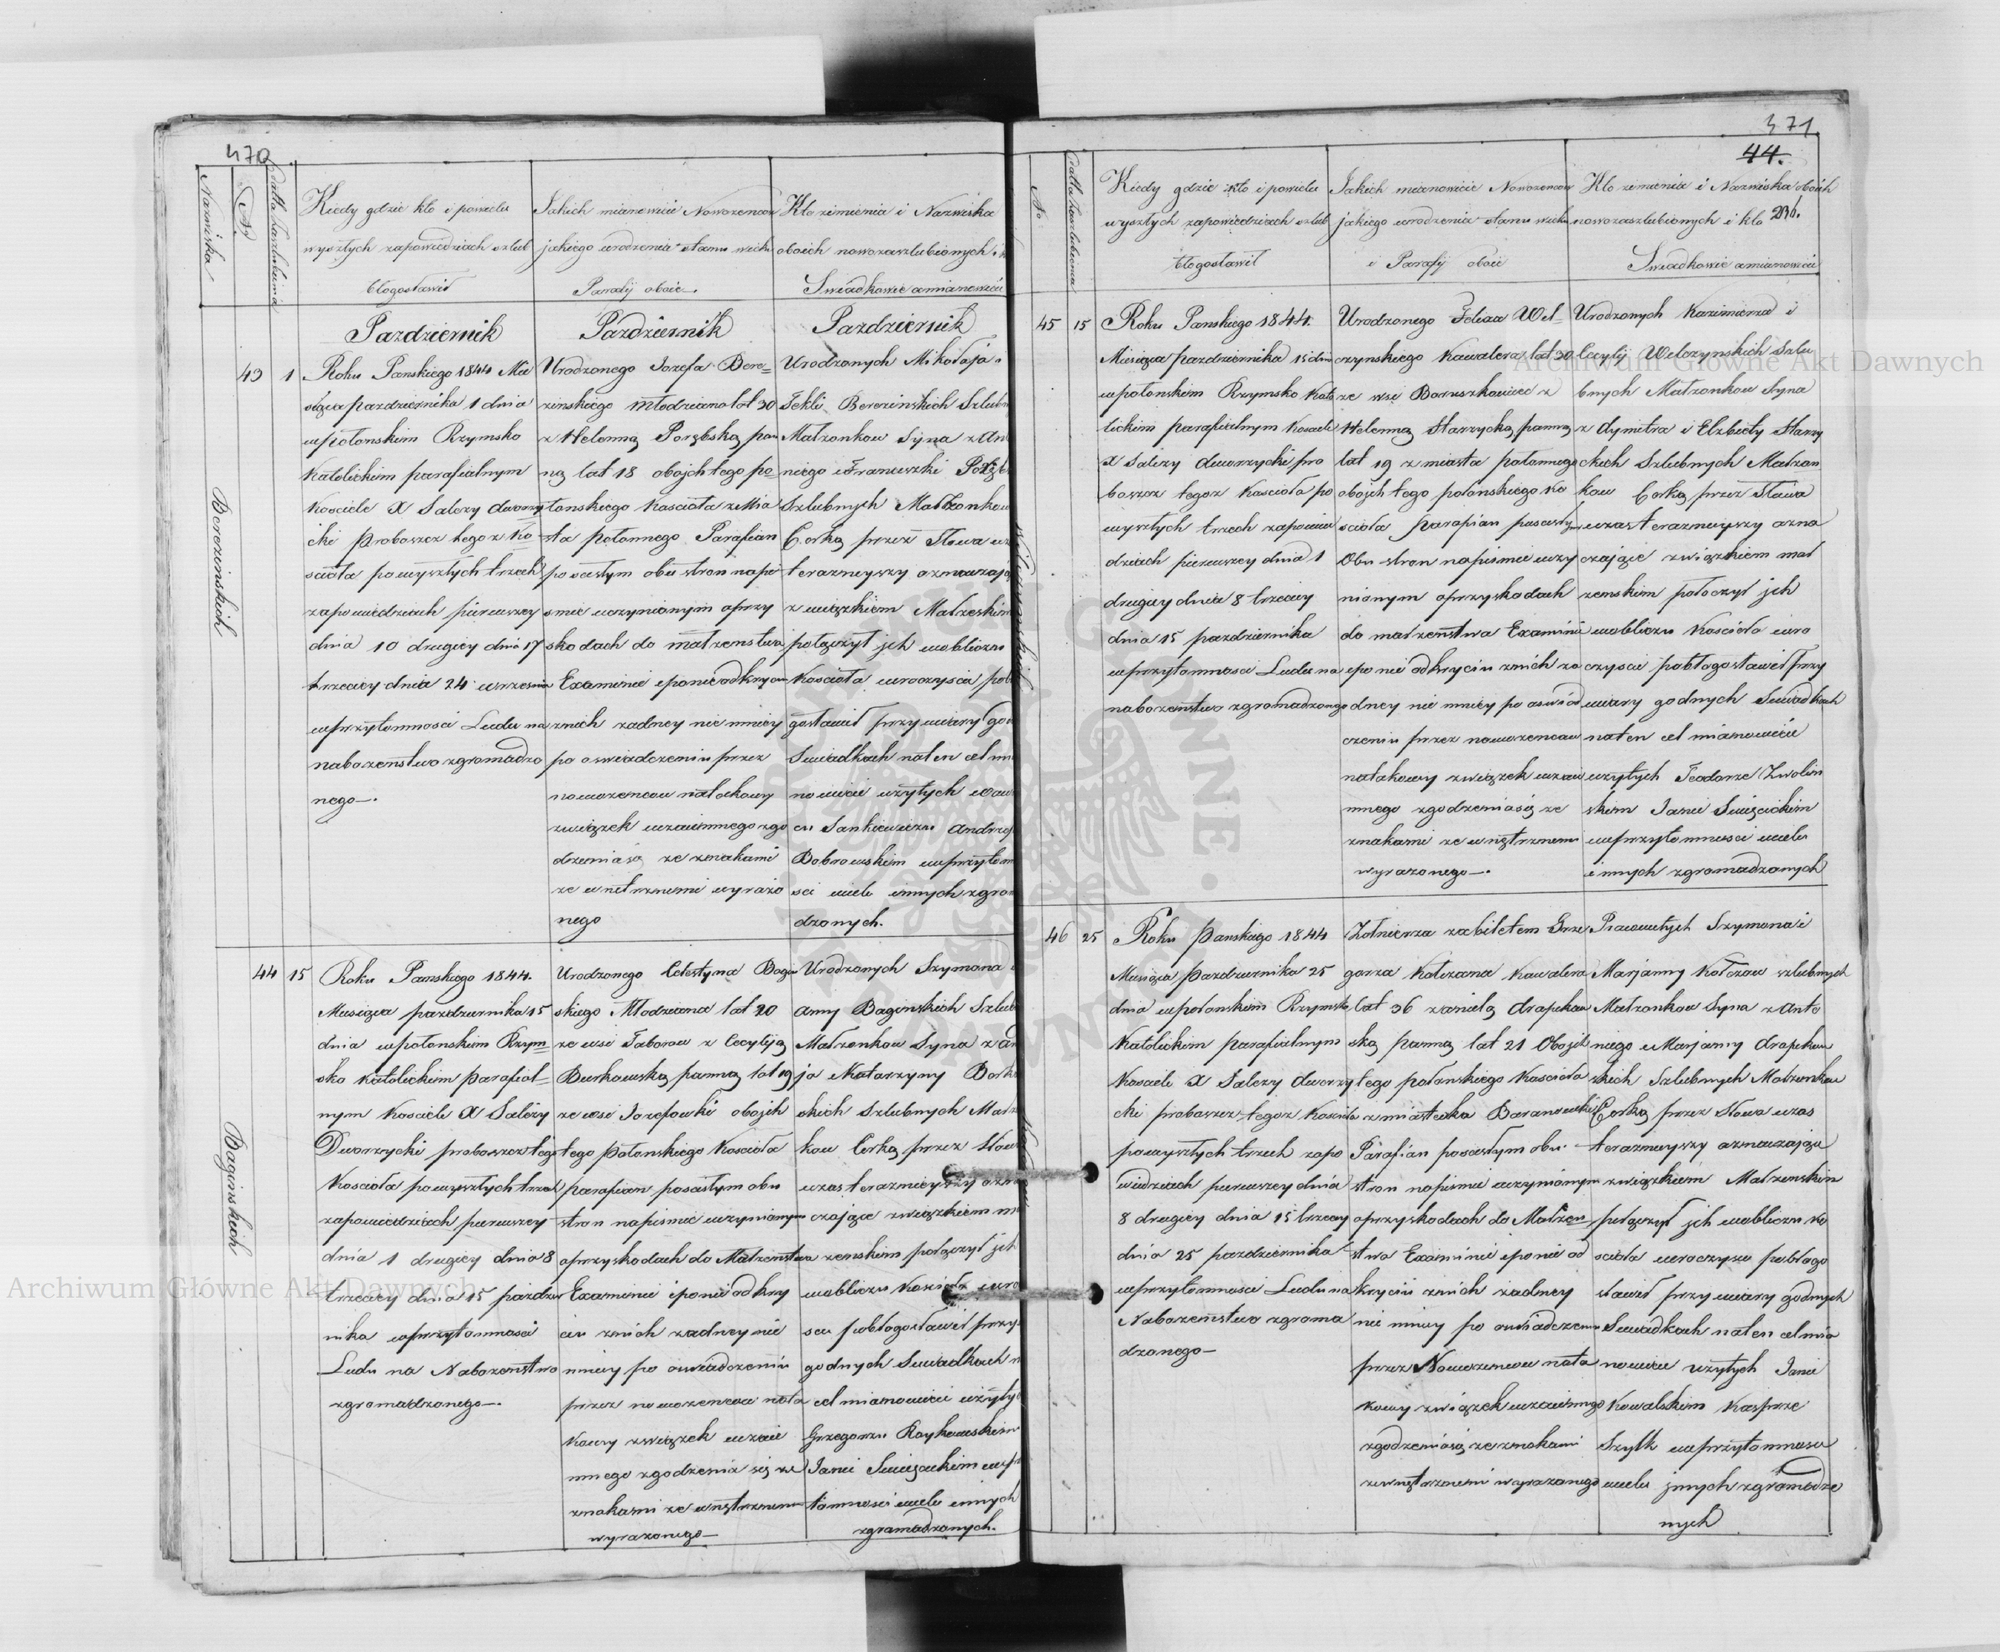 470
Nazwiska
No
Datta zaszlubienia
Kiedy gdzie kto i powielu
wyszłych zapowiedziach szlub
błogosławił
Jakich mianowicie Nowozencow
jakiego urodzenia stanu wieku
Parafij oboie
Kto zimienia i Nazwiska
oboich nowozaszlubionych i
Swiadkowie a mianowicie
Pazdziernik
Pazdziernik
Pazdziernik
Berezinskich
43
1
Roku Panskiego 1844 Mie
siąca pazdziernika 1 dnia
wpołonskim Rzymsko
Katolickim parafialnym
Kosciele X Salezy dworzy
cki Proboszcz tegoz Ko
scioła powyszłych trzech
zapowiedziach pierwszey
dnia 10 drugiey dnia 17
trzeciey dnia 24 wrzesnia
wprzytomnosci Ludu na
nabozenstwo zgromadzo
nego
Urodzonego Jozefa Bere=
zinskiego młodziana lat 30
z Heleną Porębską pan
ną lat 18 obojch tego po=
łonskiego Koscioła zMia
sta połonnego Parafian
poscisłym obu stron napi
smie uczynionym oprzy
skodach do małzenstwa
Examinie iponieodkryciu
znich zadney nie mniey
po oswiadczeniu przez
nowozencow natakowy
związek wzaiemnego zgo
dzenia się ze znakami
ze wnetrznemi wyrazo
nego
Urodzonych Mikołaja i
Tekli Berezinskich Szlubn
Małzonkow Syna z An
niego i Franciszki Poręb
Szlubnych Małzonkow
Corką przez Słowa w
terazneyszy oznaczają
związkiem Małzeskim
połączył jch wobliczu
Koscioła uroczyscie pobł
gosławił przy wiary god
Swiadkach naten cel mi
nowicie uzytych
Sankiewiczu Andrzej
Bobrowskim wprzytom
sci wielu innych zgrom
dzonych.
Baginskich
44
15
Roku Panskego 1844.
Miesiąca pazdziernika 15
dnia wpołonskim Rzym=
sko katolickim parafial=
nym Kosciele X Salezy
Dworzycki proboszcz tego
Koscioła powyszłych trzech
zapowiedziach pierwszey
dnia 1 drugiey dnia 8
trzeciey dnia 15 pazdzier
nika wprzytomnosci
Ludu na Nabozenstwo
zgromadzonego
Urodzonego Celestyna Bagin
skiego Młodziana lat 20
ze wsi Taborow z Cecylją
Burkowską panną lat 19
ze wsi Jozefowki obojch
tego połonskiego Koscioła
parafian poscisłym obu
stron napismie uczynionym
oprzyskodach do Małzenstwa
Examinie iponieodkry
ciu znich zadney nie
mniey po oswiadczeniu
przez nowozencow nata
kowy związek wzaie
mnego zgodzenia się ze
znakami ze wnętrznemi
wyrazonego
Urodzonych Szymona
Anny Baginskich Szlub
Małzonkow Syna z An
ja Katarzyny
skich Szlubnych Małz
kow Corką przez Słow
wzas terazneyszy ozn
czające związkiem m
zenskim połączył jch
wobliczu Koscioła uro
scie pobłogosławił przy
godnych Swiadkach n
cel mianowicie uzyty
Grzegorzu Raykowskim
Janie Swięcickim wp
tomnosci wielu innych
zgromadzonych.
371
44.
No
Datta zaszlubienia
Kiedy gdzie kto i powielu
wyszłych zapowiedziach szlub
błogosławił
Jakich mianowicie Nowozencow
jakiego urodzenia stanu wieku
i Parafij oboie
Kto zimienia i Nazwiska oboich
nowozaszlubionych i kto
Swiadkowie a mianowicie
45
15
Roku Panskiego 1844.
Miesiąca pazdziernika 15 dnia
wpołonskim Rzymsko Kato
lickim parafialnym Kosciele
X Salezy dworzycki pro
boszcz tegoz Koscioła po
wyszłych trzech zapowie
dziach pierwszey dnia 1
drugiey dnia 8 trzeciey
dnia 15 pazdziernika
wprzytomnosci Ludu na
nabozenstwo zgromadzonego
Urodzonego Felixa Wel=
czynskiego Kawalera lat 30
ze wsi Boruszkowiec z
Heleną Starzycką panną
lat 19 z miasta połonnego
obojch tego połonskiego Ko
scioła parafian poscisłym
Obu stron napismie uczy
nionym oprzyskodach
do małzenstwa Examinie
iponieodkryciu znich za
dney nie mniey po oswiad
czeniu przez nowozencow
natakowy związek wzaie
mnego zgodzenia się ze
znakami ze wnętrznemi
wyrazonego
Urodzonych Kazimierza i
Cecylij Welczynskich Szlu
bnych Małzonkow Syna
z dymitra i Elzbiety Starzy
ckich Szlubnych Małzon
kow Corką przez Słowa
wzas terazneyszy ozna
czające związkiem mał
zenskim połoczył jch
wobliczu Koscioła uro
czyscie pobłogosławił przy
wiary godnych Swiadkach
naten cel mianowicie
uzytych Teodorze Zwolin
skim Janie Swięcickim
wprzytomnosci wielu
innych zgromadzonych
46
25
Roku Panskiego 1844
Miesiąca pazdziernika 25
dnia wpołonskim Rzymsko
Katolickim parafialnym
Kosciele X Salezy dworzy
cki proboszcz tegoz Koscioła
powyszłych trzech zapo
wiedziach pierwszey dnia
8 drugiey dnia 15 trzeciey
dnia 25 pazdziernika
wprzytomnosci Ludu na
Nabozenstwo zgroma
dzonego
Zołnierza zabiletem Grze
gorza Kołczana Kawalera
lat 36 zanielą drapkow
ską panną lat 21 Obojch
tego połonskiego Koscioła
zmiasteczka Baranowki
Parafian poscisłym obu
stron napismie uczynionym
oprzyskodach do Małzen
stwa Examinie iponieod
kryciu znich zadney
nie mniey po oswiadczeniu
przez Nowozencow nata
kowy związek wzaiemnego
zgodzenia się ze znakami
zewnętrznemi wyrazonego
Pracowitych Szymona i
Marjanny Kołczow szlubnych
Małzonkow Syna z Anto
niego i Marjanny drapkow
skich Szlubnych Małzonkow
Corką przez Słowa wzas
terazneyszy oznaczające
związkiem Małzenskim
połączył jch wobliczu Ko
scioła uroczyscie pobłogo
sławił przy wiary godnych
Swiadkach naten cel mia
nowicie uzytych Janie
Kowalskim Kasprze
Szylk wprzytomnosci
wielu jnnych zgromadzo
nych
Archiwum Główne Akt Dawnych
Archiwum Główne Akt Dawnych